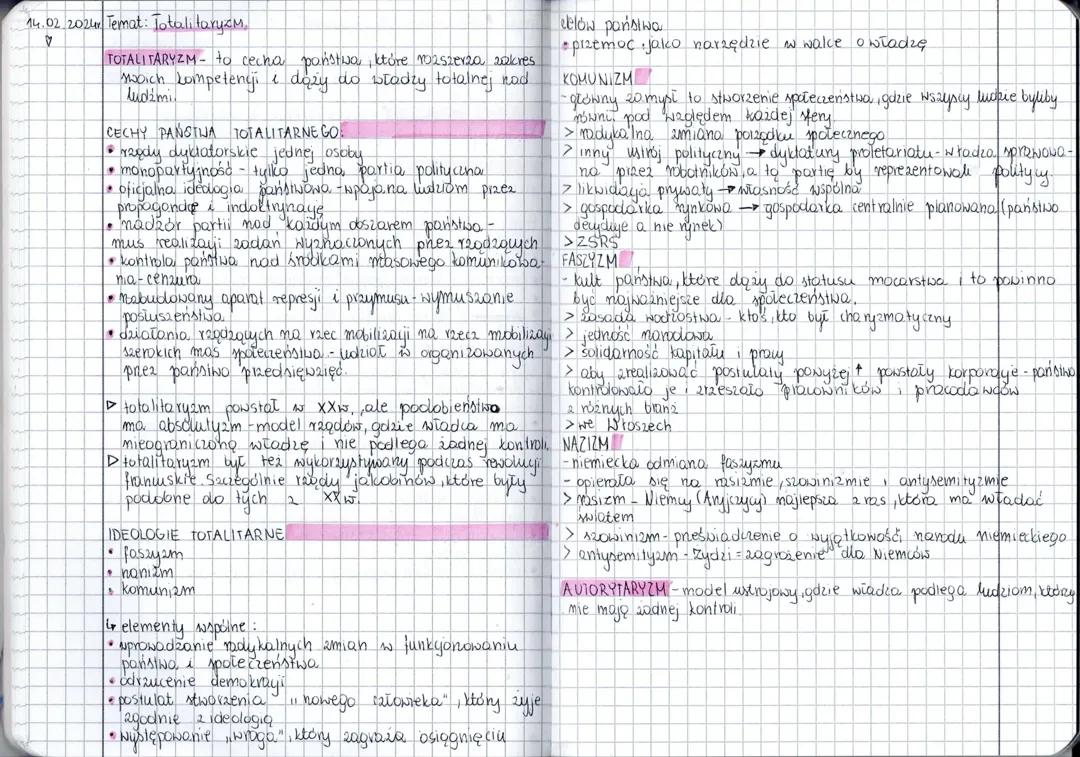 14.02.2024r. Temat: Totalitaryzm.
TOTALITARYZM - to cecha państwa, które rozszerza zakres
swoich kompetencji i dąży do władzy totalnej nad
ludźmi.
CECHY PAŃSTWA TOTALITARNEGO:
• rządy dyktatorskie jednej osoby
• monopartyjność - tylko jedna partia polityczna
• oficjalna ideologia państwowa - wpojana ludziom przez
propagandę i indoktrynację
• nadzór partii nad każdym obszarem państwa -
mus realizacji zadań wyznaczonych przez rządzących
• kontrola państwa nad środkami masowego komunikowa-
nia - cenzura
• nabudowany aparat represji i przymusu - wymuszanie
posłuszeństwa
• działania rządzących na rzec mobilizacji na rzecz mobilizacji
szerokich mas społeczeństwa - udział w organizowanych
przez państwo przedsięwzięć.
▷ totalitaryzm powstał w XXw., ale podobieństwa
ma absolutyzm - model rządów, gdzie władca ma
nieograniczoną władzę i nie podlega żadnej kontroli.
▷ totalitaryzm był też wykorzystywany podczas rewolucji
francuskie. Szczególnie rządy jakobinów, które były
podobne do tych z XXw.
IDEOLOGIE TOTALITARNE
• faszyzm
• nazizm
• komunizm
↳ elementy wspólne:
• wprowadzanie radykalnych zmian w funkcjonowaniu
państwa i społeczeństwa
• odrzucenie demokracji
• postulat stworzenia "nowego człowieka", który żyje
zgodnie z ideologią
• występowanie „wroga", który zagraża osiągnięciu
celów państwa
• przemoc jako narzędzie w walce o władzę
KOMUNIZM
- główny zamysł to stworzenie społeczeństwa, gdzie wszyscy ludzie byliby
równi pod względem każdej sfery
> radykalna zmiana porządku społecznego
> inny ustrój polityczny → dyktatury proletariatu - władza sprawowa-
na przez robotników, a tą partię by reprezentowali politycy.
> likwidacja prywaty → własność wspólna
> gospodarka rynkowa → gospodarka centralnie planowana (państwo
decyduje a nie rynek)
> ZSRS
FASZYZM
- kult państwa, które dąży do statusu mocarstwa i to powinno
być najważniejsze dla społeczeństwa.
> zasada wodzostwa - ktoś, kto był charyzmatyczny
> jedność narodowa
> solidarność kapitału i pracy
> aby zrealizować postulaty powyżej ↑ powstały korporacje - państwo
kontrolowało je i zrzeszało pracowników i pracodawców
z różnych branż
> we Włoszech
NAZIZM
- niemiecka odmiana faszyzmu
- opierała się na rasizmie, szowinizmie i antysemityzmie
> rasizm - Niemcy (Aryjczycy) najlepsza z ras, która ma władać
światem
> szowinizm - przeświadczenie o wyjątkowość narodu niemieckiego
> antysemityzm - Żydzi = zagrożenie dla Niemców
AUTORYTARYZM - model ustrojowy, gdzie władza podlega ludziom, którzy
nie mają żadnej kontroli